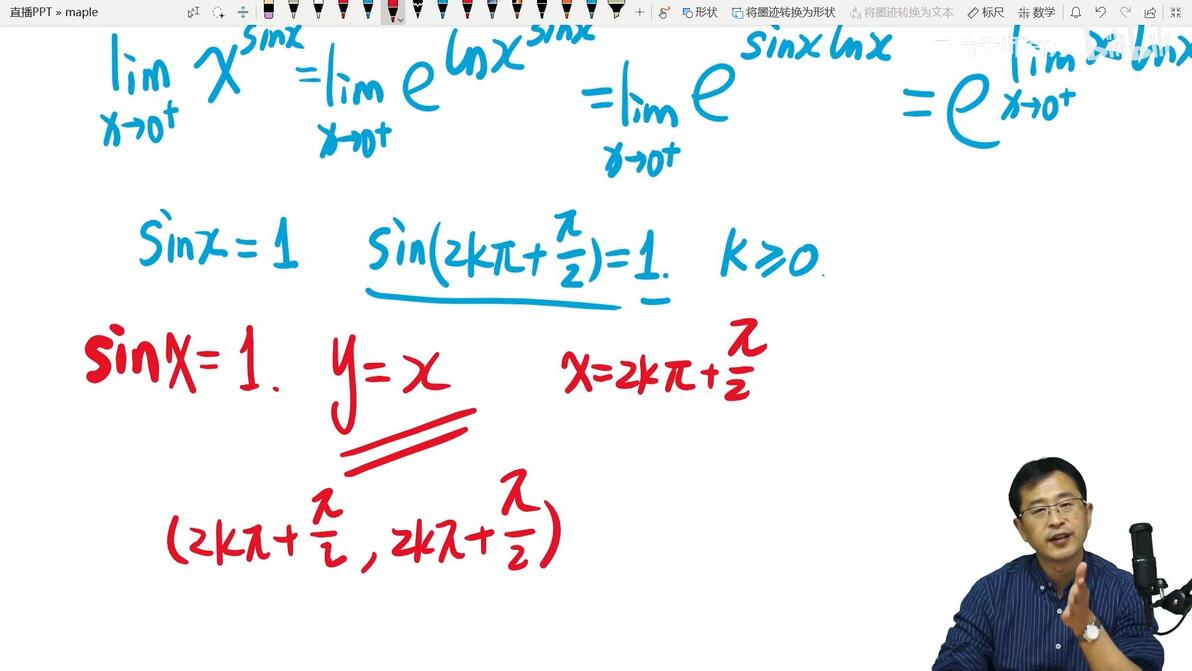 直播PPT » maple 形状 将墨迹转换为形状 将墨迹转换为文本 标尺 数学
lim x→0⁺ x^sinx = lim x→0⁺ e^lnx^sinx = lim x→0⁺ e^sinx lnx = e^lim x→0⁺ x lnx
sinx = 1 sin(2kπ + π/2) = 1. k ≥ 0.
sinx = 1. y = x x = 2kπ + π/2
(2kπ + π/2, 2kπ + π/2)